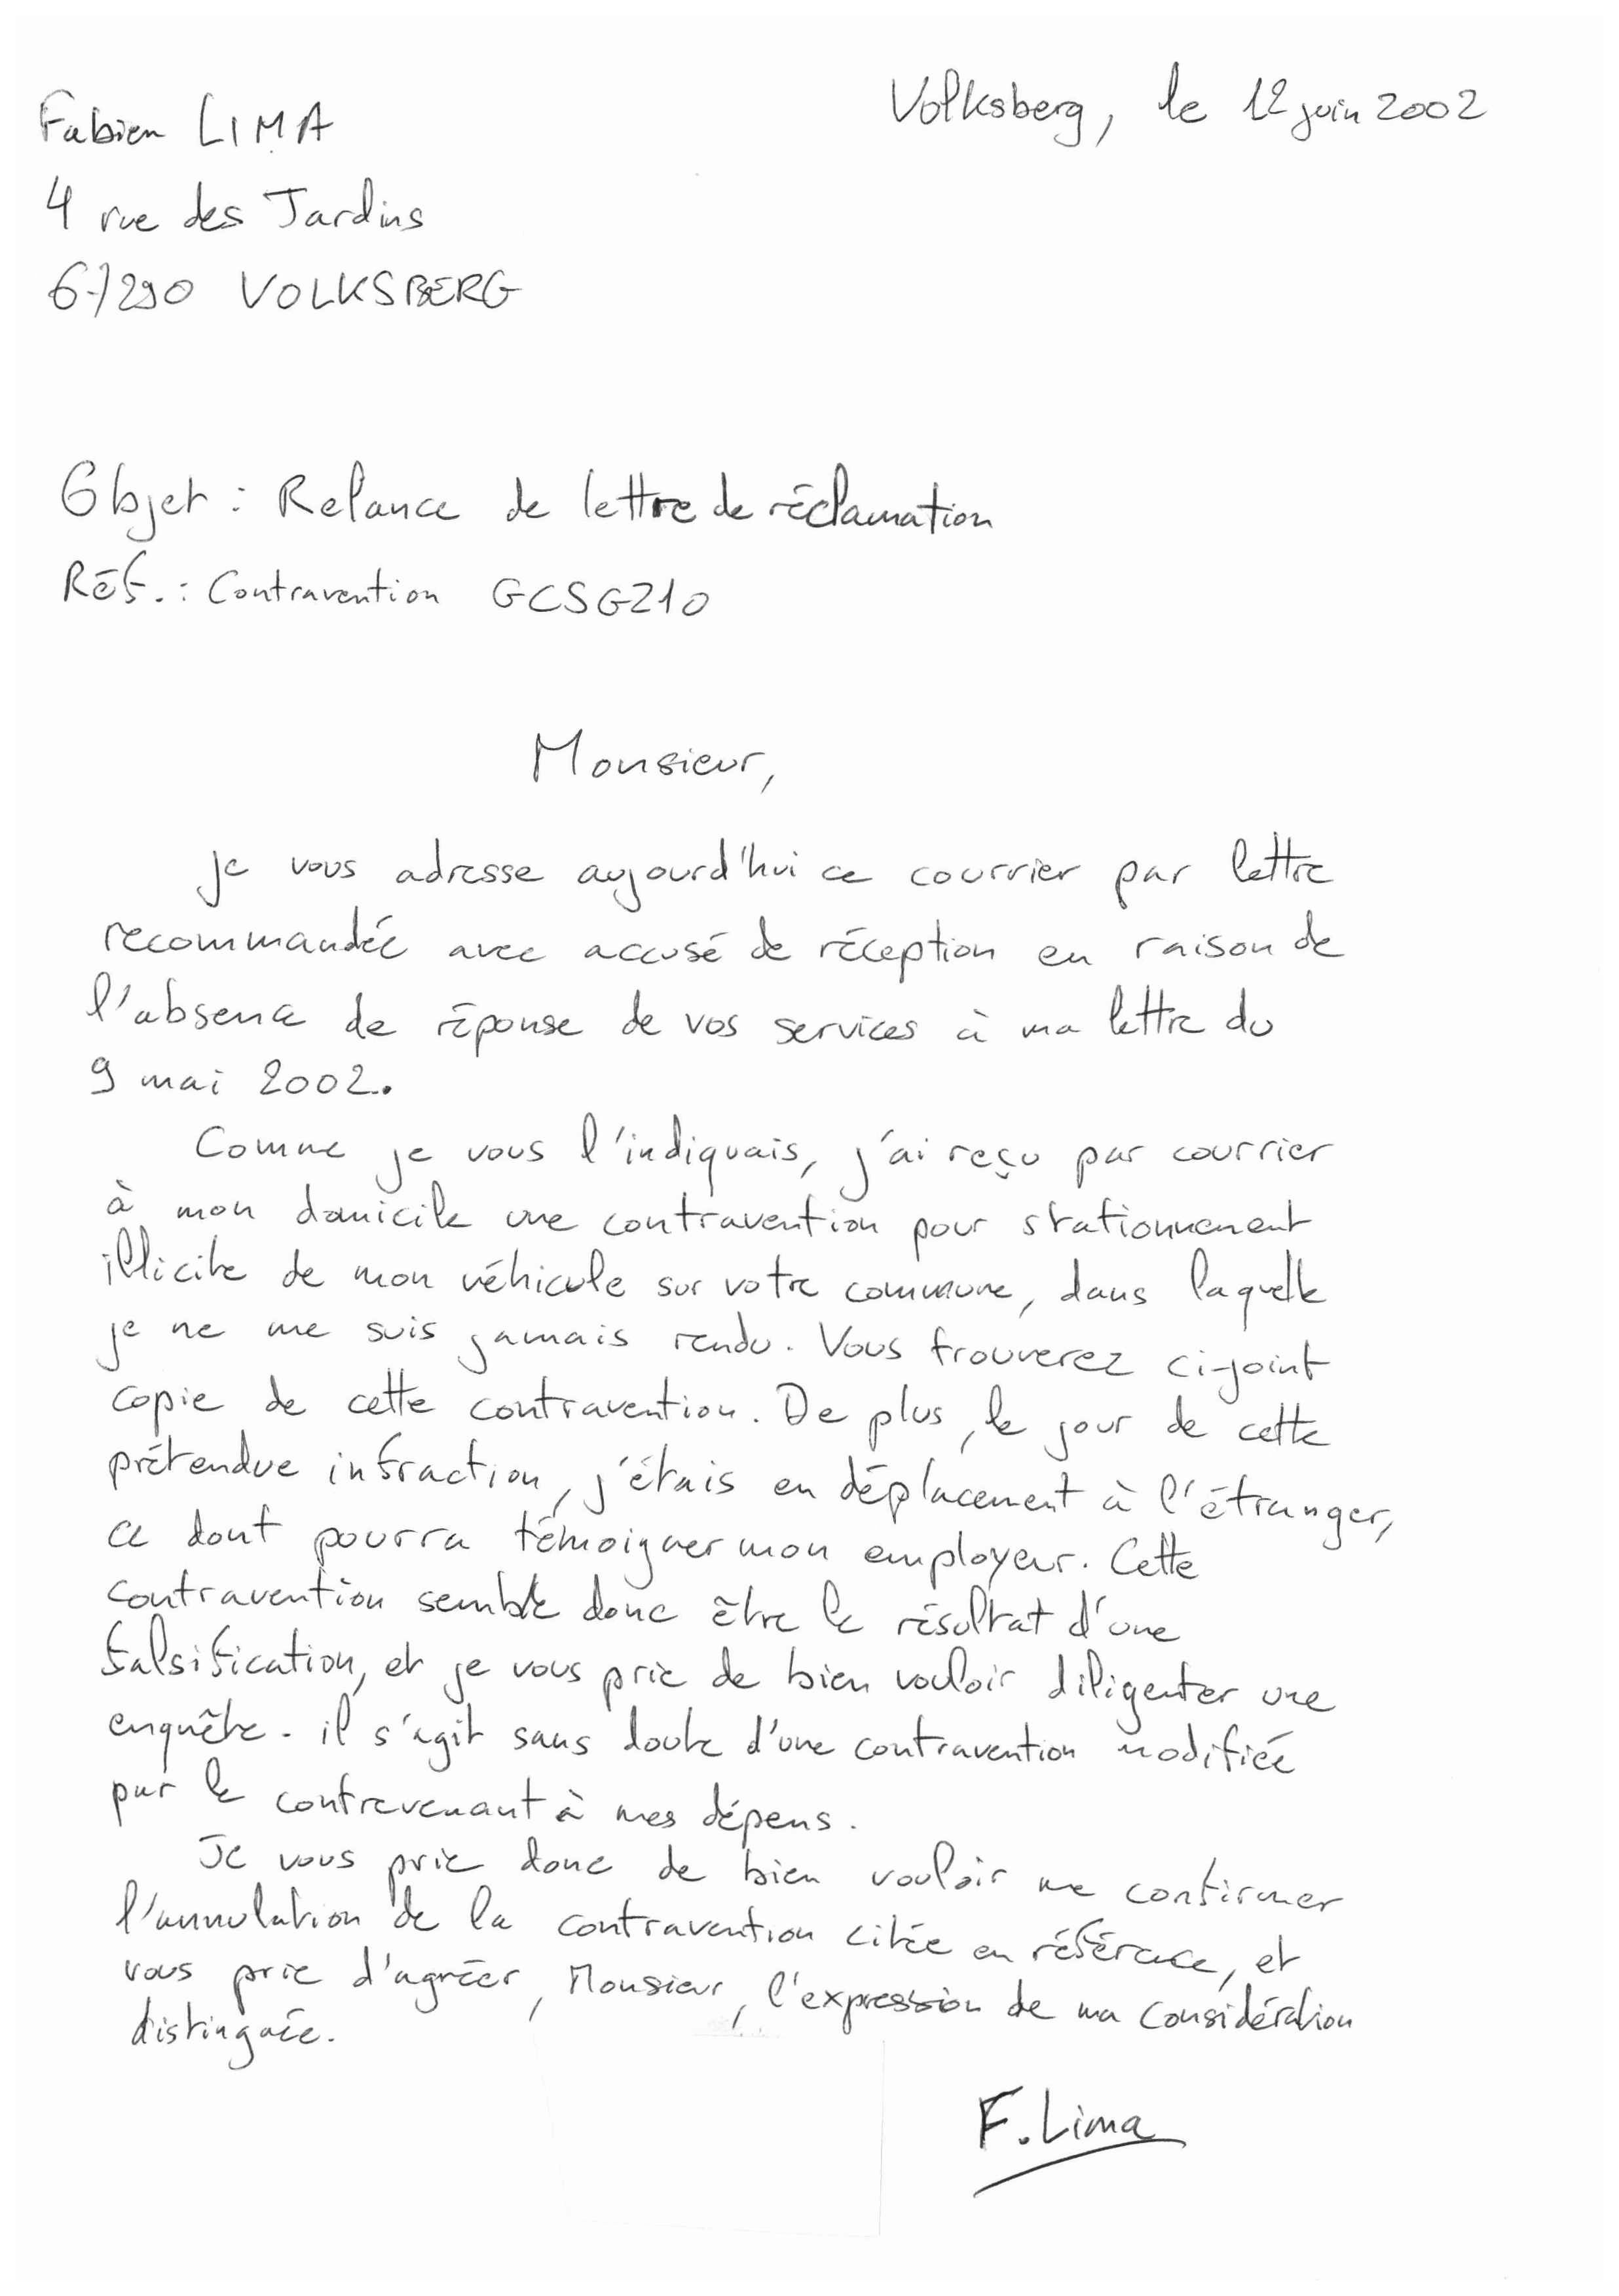 Fabien LIMA
Volksberg, le 12 juin 2002
4 rue des Jardins
67290 VOLKSBERG
Objet : Relance de lettre de réclamation
Réf. : Contravention GCSGZ10
Monsieur,
Je vous adresse aujourd'hui ce courrier par lettre
recommandée avec accusé de réception en raison de
l'absence de réponse de vos services à ma lettre du
9 mai 2002.
Comme je vous l'indiquais, j'ai reçu par courrier
à mon domicile une contravention pour stationnement
illicite de mon véhicule sur votre commune, dans laquelle
je ne me suis jamais rendu. Vous trouverez ci-joint
copie de cette contravention. De plus, le jour de cette
prétendue infraction, j'étais en déplacement à l'étranger,
ce dont pourra témoigner mon employeur. Cette
contravention semble donc être le résultat d'une
falsification, et je vous prie de bien vouloir diligenter une
enquête. il s'agit sans doute d'une contravention modifiée
par le contrevenant à mes dépens.
Je vous prie donc de bien vouloir me confirmer
l'annulation de la contravention citée en référence, et
vous prie d'agréer, Monsieur, l'expression de ma considération
distinguée.
F. Lima